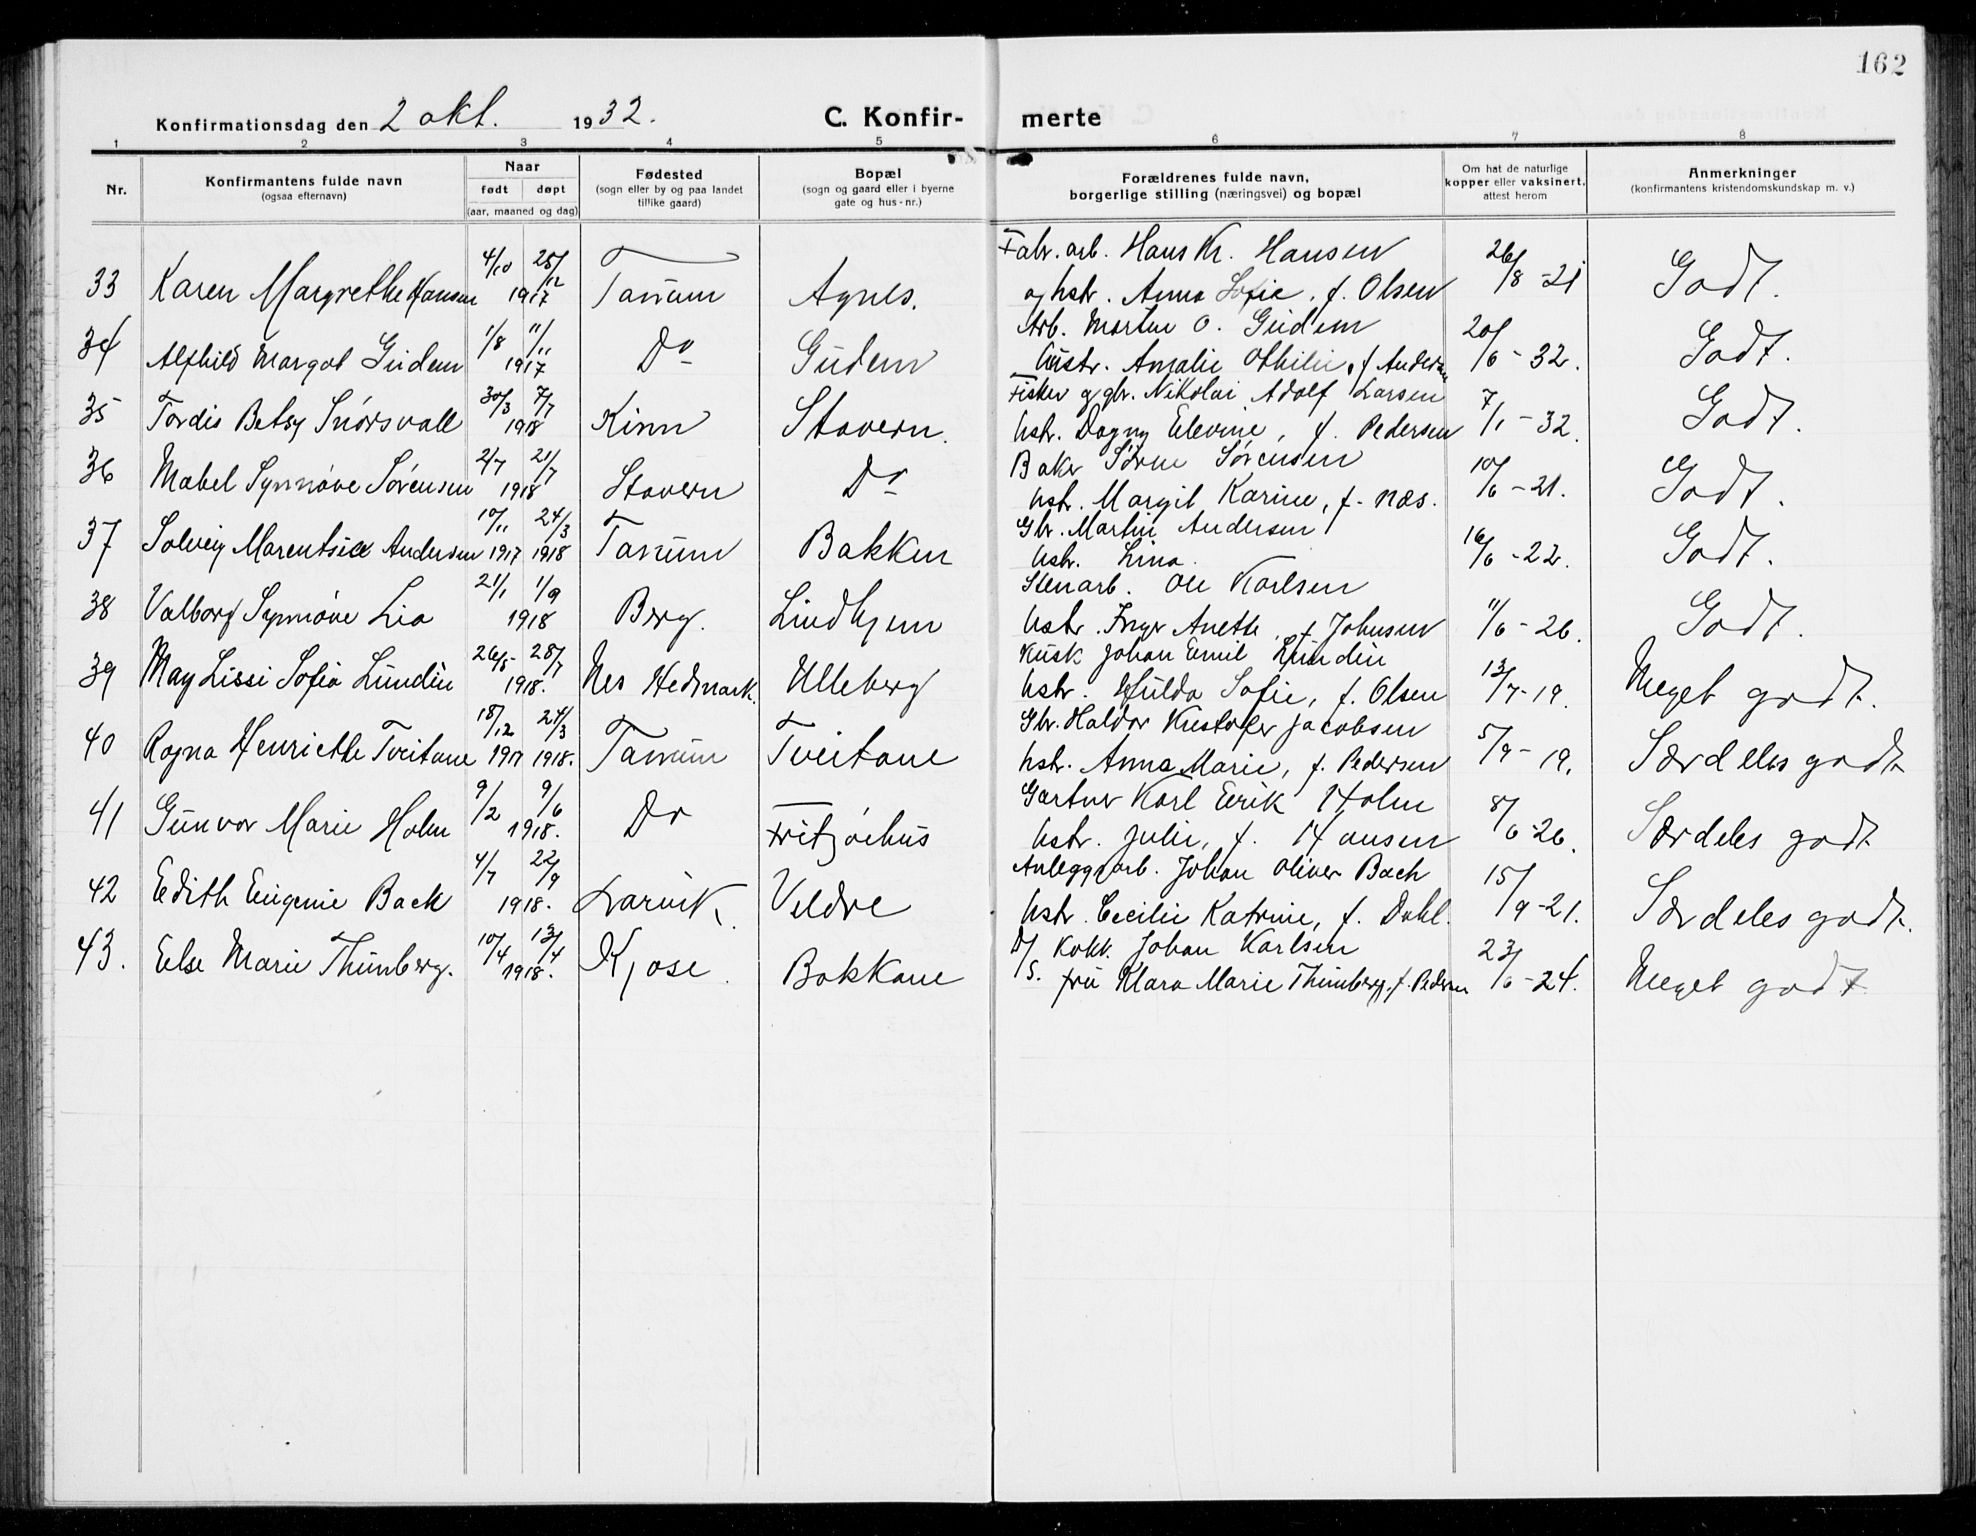 162
Konfirmationsdag den 2 okt. 1932.
C. Konfirmerte
1 2 3 4 5 6 7 8
Nr.
Konfirmantens fulde navn
(ogsaa efternavn)
Naar
født døpt
(aar, maaned og dag)
Fødested
(sogn eller by og paa landet
tillike gaard)
Bopæl
(sogn og gaard eller i byerne
gate og hus-nr.)
Forældrenes fulde navn,
borgerlige stilling (næringsvei) og bopæl
Om hat de naturlige
kopper eller vaksinert,
attest herom
Anmerkninger
(konfirmantens kristendomskundskap m. v.)
33 Karen Margrethe Hansen 4/10 25/12 1917 Tanum Agnes. Fabr. arb. Hans Kr. Hansen
og hstr. Anna Sofie, f. Olsen 26/8-21 Godt.
34 Alfhild Margot Gudem 1/8 11/11 1917 Do Gudem Arb. Morten O. Gudem
hustr. Amalie Othilie, f. Andersen 20/6-32. Godt.
35 Tordis Betsy Snørsvall 30/3 7/7 1918 Kinn Stavern. Fisker og gbr. Nikolai Adolf Larsen
hstr. Dagny Elevine, f. Pedersen 7/1-32. Godt.
36 Mabel Synnøve Sørensen 2/7 21/7 1918 Stavern Do Baker Sørne Sørensen
hstr. Margit Karine, f. Næs. 10/6-21. Godt.
37 Solveig Marentsie Andersen 10/11 1917 24/3 1918 Tanum Bakken Gbr. Martin Andersen
hstr. Lina. 16/6-22. Godt.
38 Valborg Synnøve Lia 21/1 1/9 1918 Berg. Lindhjem Stenarb. Ole Karlsen
hstr. Inger Anette, f. Johnsen 11/6-26. Godt.
39 May Lissi Sofia Lundin 26/5 28/7 1918. Nes Hedmark. Ulleberg Kusk Johan Emil Lundin
hstr. Hulda Sofie, f. Olsen 13/7-19. Meget godt.
40 Ragna Henriette Tveitane 18/12 1917 24/3 1918. Tanum Tveitane Gbr. Haldor Kristofer Jacobsen
hstr. Anna Marie, f. Pedersen 5/9-19. Særdeles godt
41 Gunvor Marie Holm 9/2 9/6 1918. Do Fritzøehus Gartner Karl Eerik Holm
hstr. Julie, f. Hansen 8/6-26. Særdeles godt
42 Edith Eugenie Back 4/7 22/9 1918. Larvik. Veldre Anleggsarb. Johan Oliver Bach
hstr. Cecilie Katrine, f. Dahl. 15/9-21. Særdeles godt.
43. Else Marie Thunberg. 10/4 13/4 1918. Kjose. Bakkane D/S. Kokk. Johan Karlsen
fru Klara Marie Thunberg, f. Pedersen 23/6-24. Meget godt